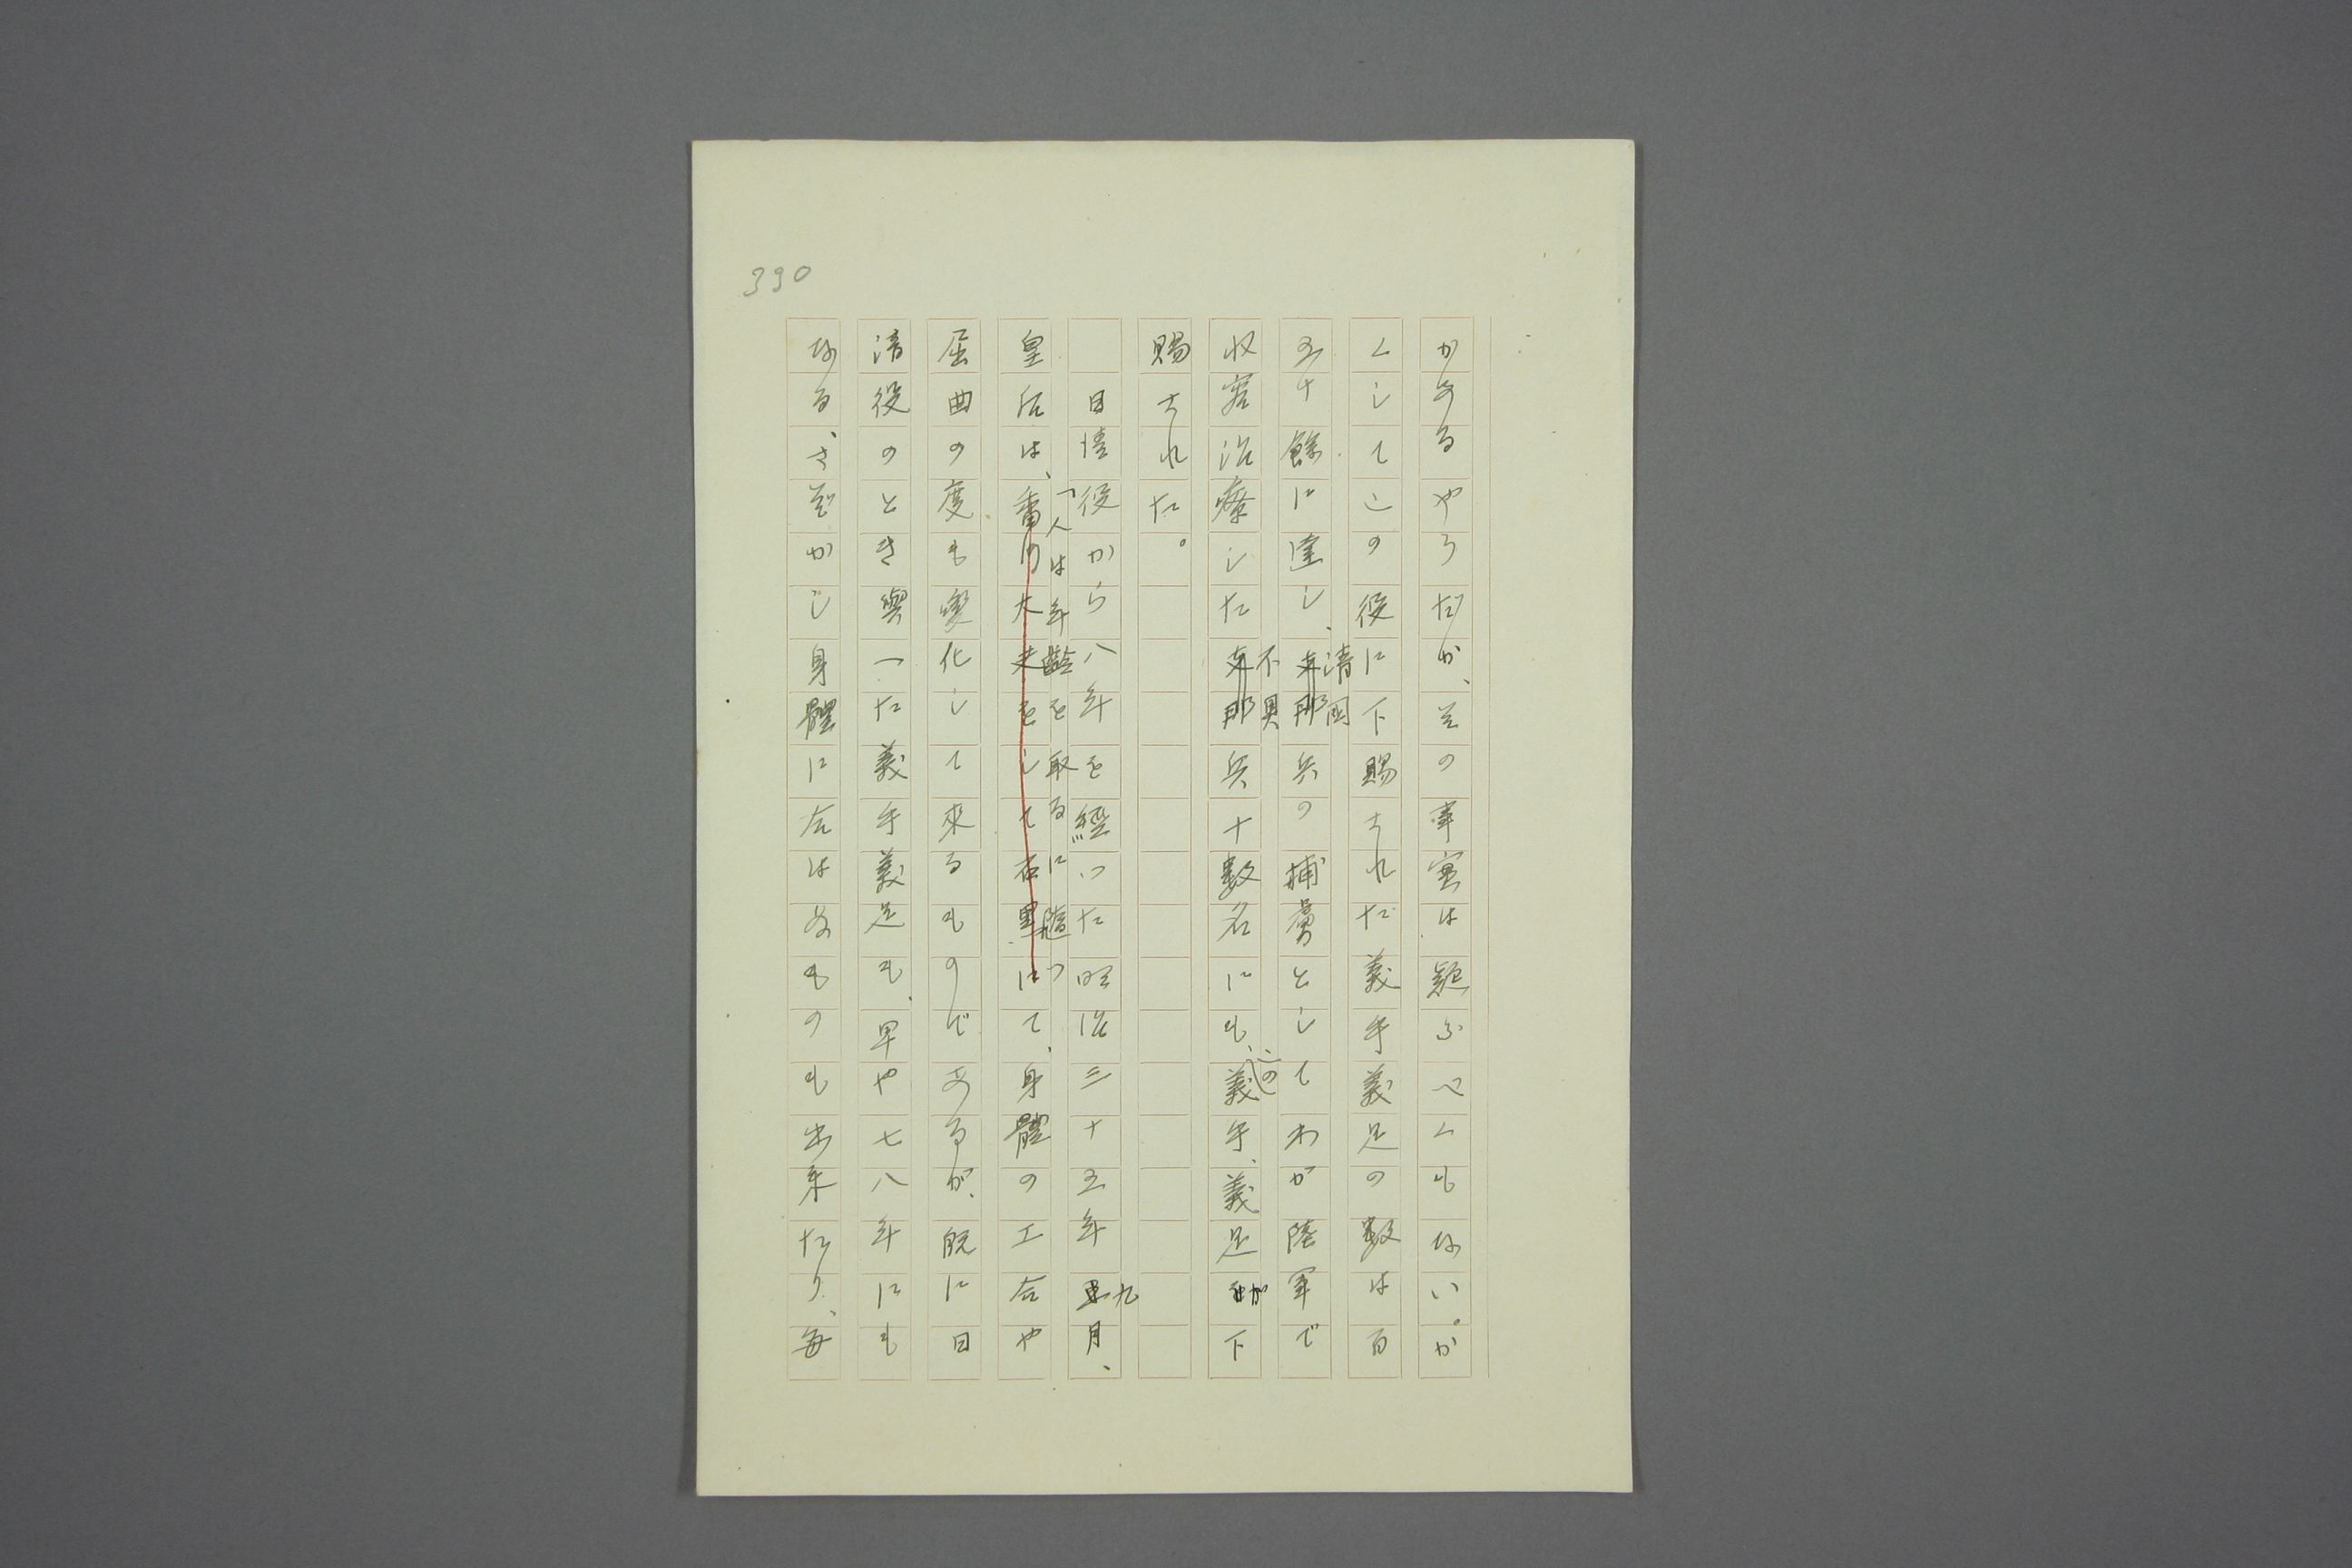 390
かあるやうだが、その事實は疑ふべくもない。か
くしてこの役に下賜された義手義足の數は百
清国
五十餘に達し、支那兵の捕虜としてわが陸軍で
不具 この
収容治療した支那兵十數名にも、義手、義足が下
賜された。
日清役から八年を經つた明治三十五年九月、
「人は年齢を取るに隨つ
皇后は、香川大夫をして石黒にて、身體の工合や
屈曲の度も變化して來るものであるが、既に日
清役のとき與へた義手義足も、早や七八年にも
なる、さぞかし身體に合はぬものも出来たり、毎